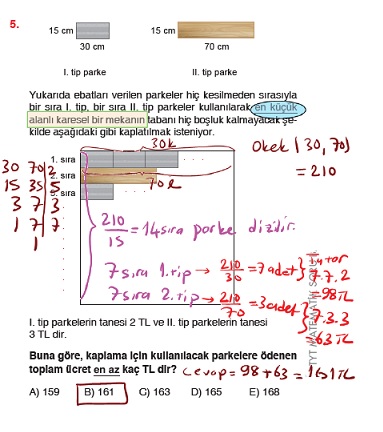 5.
15 cm
30 cm
15 cm
70 cm
I. tip parke
II. tip parke
Yukarıda ebatları verilen parkeler hiç kesilmeden sırasıyla
bir sıra I. tip, bir sıra II. tip parkeler kullanılarak en küçük
alanlı karesel bir mekanın tabanı hiç boşluk kalmayacak şe-
kilde aşağıdaki gibi kaplatılmak isteniyor.
Okek (30, 70)
= 210
30 70 2
15 35 5
3 7 3
1 7 7
1
30k
1. sıra
2. sıra
3. sıra
70l
210/15 = 14 sıra parke dizilir.
7 sıra 1. tip → 210/30 = 7 adet
7.7.2
= 98 TL
7 sıra 2. tip → 210/70 = 3 adet
7.3.3
= 63 TL
I. tip parkelerin tanesi 2 TL ve II. tip parkelerin tanesi
3 TL dir.
Buna göre, kaplama için kullanılacak parkelere ödenen
toplam ücret en az kaç TL dir?
Cevap = 98 + 63 = 161 TL
A) 159
B) 161
C) 163
D) 165
E) 168
TYT MATEMATİK